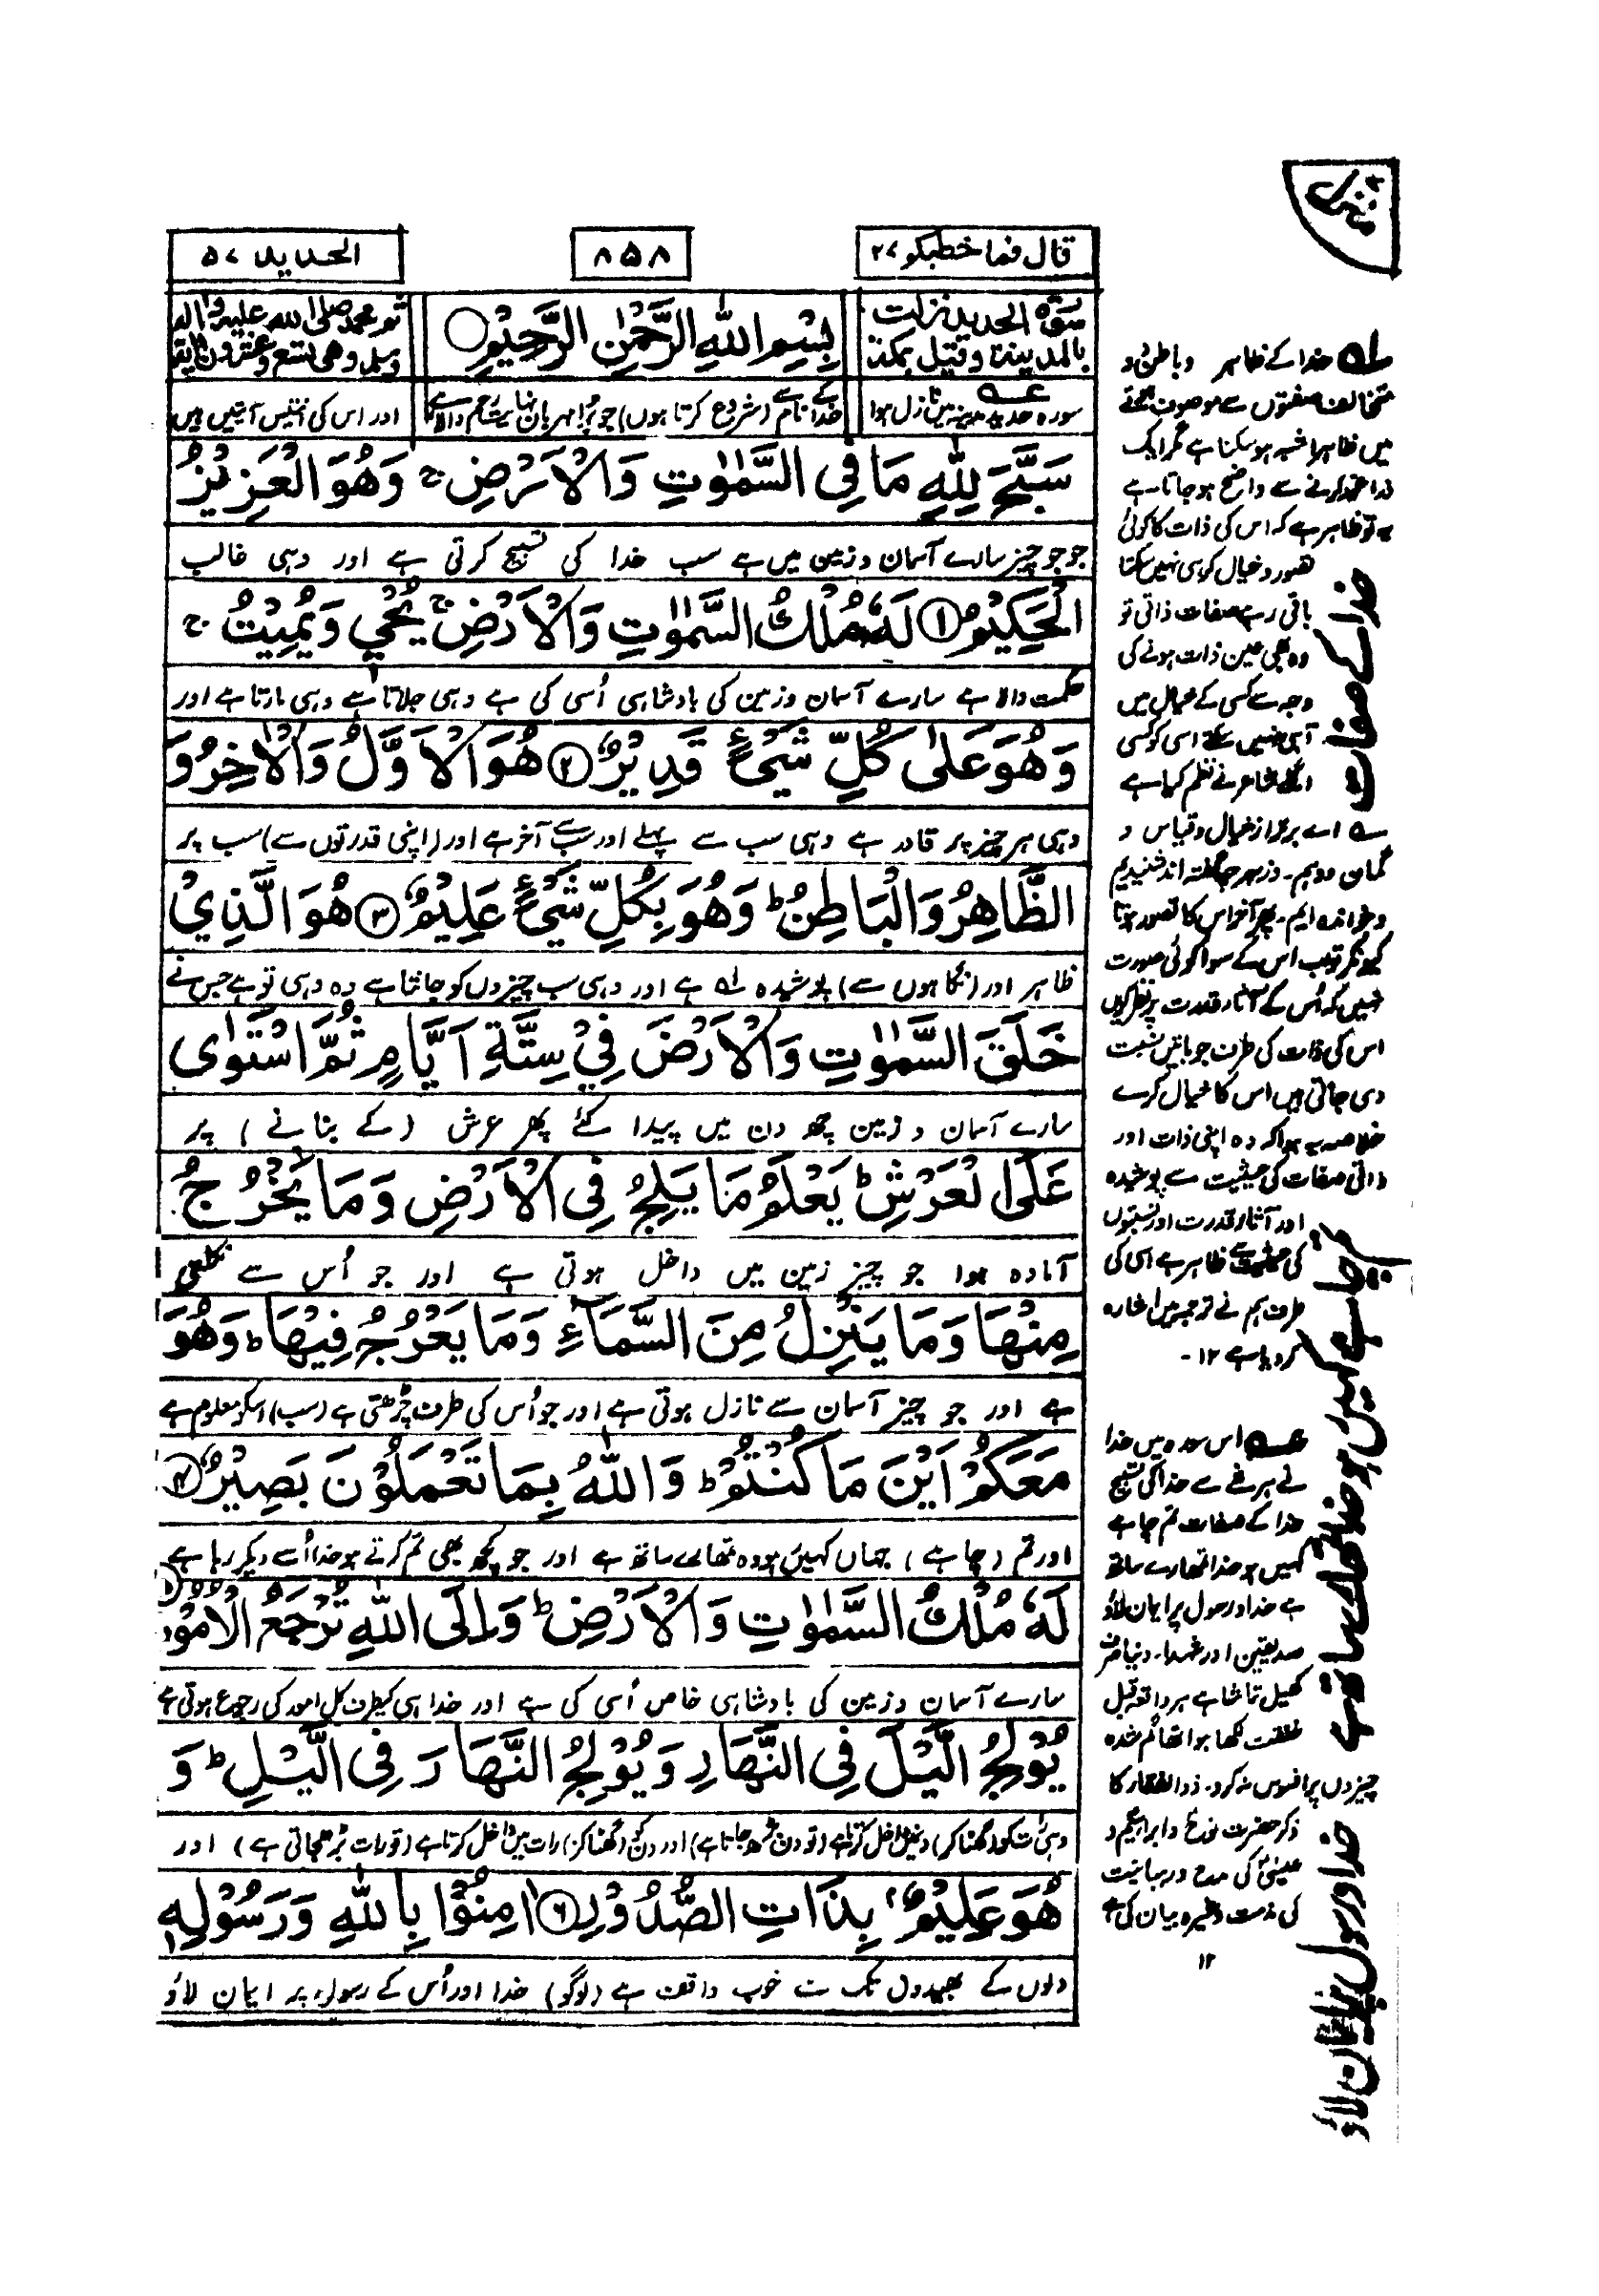 منزل
قال فما خطبكم ۲۷
۸۵۸
الحديد ۵۷
سورة الحديد نزلت
بالمدينة وقيل بمكة
بِسْمِ اللهِ الرَّحْمٰنِ الرَّحِيْمِ
محمد صلى الله عليه واله
وسلم وهى تسع وعشرون اية
سورہ حدید مدینہ میں نازل ہوا
خدا کے نام سے (شروع کرتا ہوں) جو بڑا مہربان نہایت رحم والا ہے
اور اس کی انتیس آیتیں ہیں
سَبَّحَ لِلّٰهِ مَا فِى السَّمٰوٰتِ وَالْاَرْضِ ج وَهُوَ الْعَزِيْزُ
جو جو چیز سارے آسمان و زمین میں ہے سب خدا کی تسبیح کرتی ہے اور وہی غالب
الْحَكِيْمُ ۱ لَهٗ مُلْكُ السَّمٰوٰتِ وَالْاَرْضِ ج يُحْيٖ وَيُمِيْتُ ج
حکمت والا ہے سارے آسمان و زمین کی بادشاہی اُسی کی ہے وہی جلاتا ہے وہی مارتا ہے اور
وَهُوَ عَلٰى كُلِّ شَيْءٍ قَدِيْرٌ ۲ هُوَ الْاَوَّلُ وَالْاٰخِرُ وَ
وہی ہر چیز پر قادر ہے وہی سب سے پہلے اور سب سے آخر ہے اور (اپنی قدرتوں سے) سب پر
الظَّاهِرُ وَالْبَاطِنُ ط وَهُوَ بِكُلِّ شَيْءٍ عَلِيْمٌ ۳ هُوَ الَّذِيْ
ظاہر اور (نگاہوں سے) پوشیدہ لہ ہے اور وہی سب چیزوں کو جانتا ہے وہ وہی تو ہے جس نے
خَلَقَ السَّمٰوٰتِ وَالْاَرْضَ فِيْ سِتَّةِ اَيَّامٍ ثُمَّ اسْتَوٰى
سارے آسمان و زمین چھ دن میں پیدا کئے پھر عرش (کے بنانے) پر
عَلَى الْعَرْشِ ط يَعْلَمُ مَا يَلِجُ فِى الْاَرْضِ وَمَا يَخْرُجُ
آمادہ ہوا جو چیز زمین میں داخل ہوتی ہے اور جو اُس سے نکلتی
مِنْهَا وَمَا يَنْزِلُ مِنَ السَّمَآءِ وَمَا يَعْرُجُ فِيْهَا ط وَهُوَ
ہے اور جو چیز آسمان سے نازل ہوتی ہے اور جو اُس کی طرف چڑھتی ہے (سب) اسکو معلوم ہے
مَعَكُمْ اَيْنَ مَا كُنْتُمْ ط وَاللّٰهُ بِمَا تَعْمَلُوْنَ بَصِيْرٌ ۴
اور تم (چاہے) جہاں کہیں ہو وہ تمھارے ساتھ ہے اور جو کچھ بھی تم کرتے ہو خدا اُسے دیکھ رہا ہے
لَهٗ مُلْكُ السَّمٰوٰتِ وَالْاَرْضِ ط وَاِلَى اللّٰهِ تُرْجَعُ الْاُمُوْرُ ۵
سارے آسمان و زمین کی بادشاہی خاص اُسی کی ہے اور خدا ہی کیطرف کل امور کی رجوع ہوتی ہے
يُوْلِجُ الَّيْلَ فِى النَّهَارِ وَيُوْلِجُ النَّهَارَ فِى الَّيْلِ ط وَ
وہی رات کو (گھٹا کر) دن میں داخل کرتا ہے (تو دن بڑھ جاتا ہے) اور دن کو (گھٹا کر) رات میں داخل کرتا ہے (تو رات بڑھ جاتی ہے) اور
هُوَ عَلِيْمٌ بِذَاتِ الصُّدُوْرِ ۶ اٰمِنُوْا بِاللّٰهِ وَرَسُوْلِهٖ
دلوں کے بھیدوں تک سے خوب واقف ہے (لوگو) خدا اور اُس کے رسول پر ایمان لاؤ
لہ خدا کے ظاہر و باطن دو
متخالف صفتوں سے موصوف ہونے
میں ظاہرا شبہ ہو سکتا ہے مگر ایک
ذرا غور کرنے سے واضح ہو جاتا ہے
یہ تو ظاہر ہے کہ اس کی ذات کا کوئی
تصور و خیال کر ہی نہیں سکتا
باقی رہے صفات ذاتی تو
وہ بھی عین ذات ہونے کی
وجہ سے کسی کے خیال میں
آہی نہیں سکتے اسی کو کسی
اگلے شاعر نے نظم کیا ہے
ے اے برتر از خیال و قیاس و
گمان و وہم ۔ وز ہرچہ گفتہ اند شنیدیم
و خواندہ ایم ۔ پھر آخر اس کا تصور ہوتا
کیونکر تو اب اس کے سوا کوئی صورت
نہیں کہ اُس کے آثار قدرت پر نظر کریں
اس کی ذات کی طرف جو باتیں نسبت
دی جاتی ہیں اس کا خیال کرے
خلاصہ یہ ہوا کہ وہ اپنی ذات اور
ذاتی صفات کی حیثیت سے پوشیدہ
اور آثار قدرت اور نسبتوں
کی حیثیت سے ظاہر ہے اسی کی
طرف ہم نے ترجمہ میں اشارہ
کر دیا ہے ۱۲ -
عہ اس سورہ میں خدا
نے ہر شے سے خدا کی تسبیح
خدا کے صفات تم چاہے
کہیں ہو خدا تمھارے ساتھ
ہے خدا و رسول پر ایمان لاؤ
صدیقین اور شہدا ۔ دنیا صرف
کھیل تماشا ہے ہر واقعہ قبل
خلقت لکھا ہوا تھا گم شدہ
چیزوں پر افسوس نہ کرو ۔ ذوالفقار کا
ذکر حضرت نوح و ابراہیم و
عیسیٰ کی مدح و رہبانیت
کی مذمت وغیرہ بیان کی ہے
۱۲
خدا کے صفات
تم چاہے کہیں ہو خدا تمھارے ساتھ ہے
خدا و رسول پر ایمان لاؤ